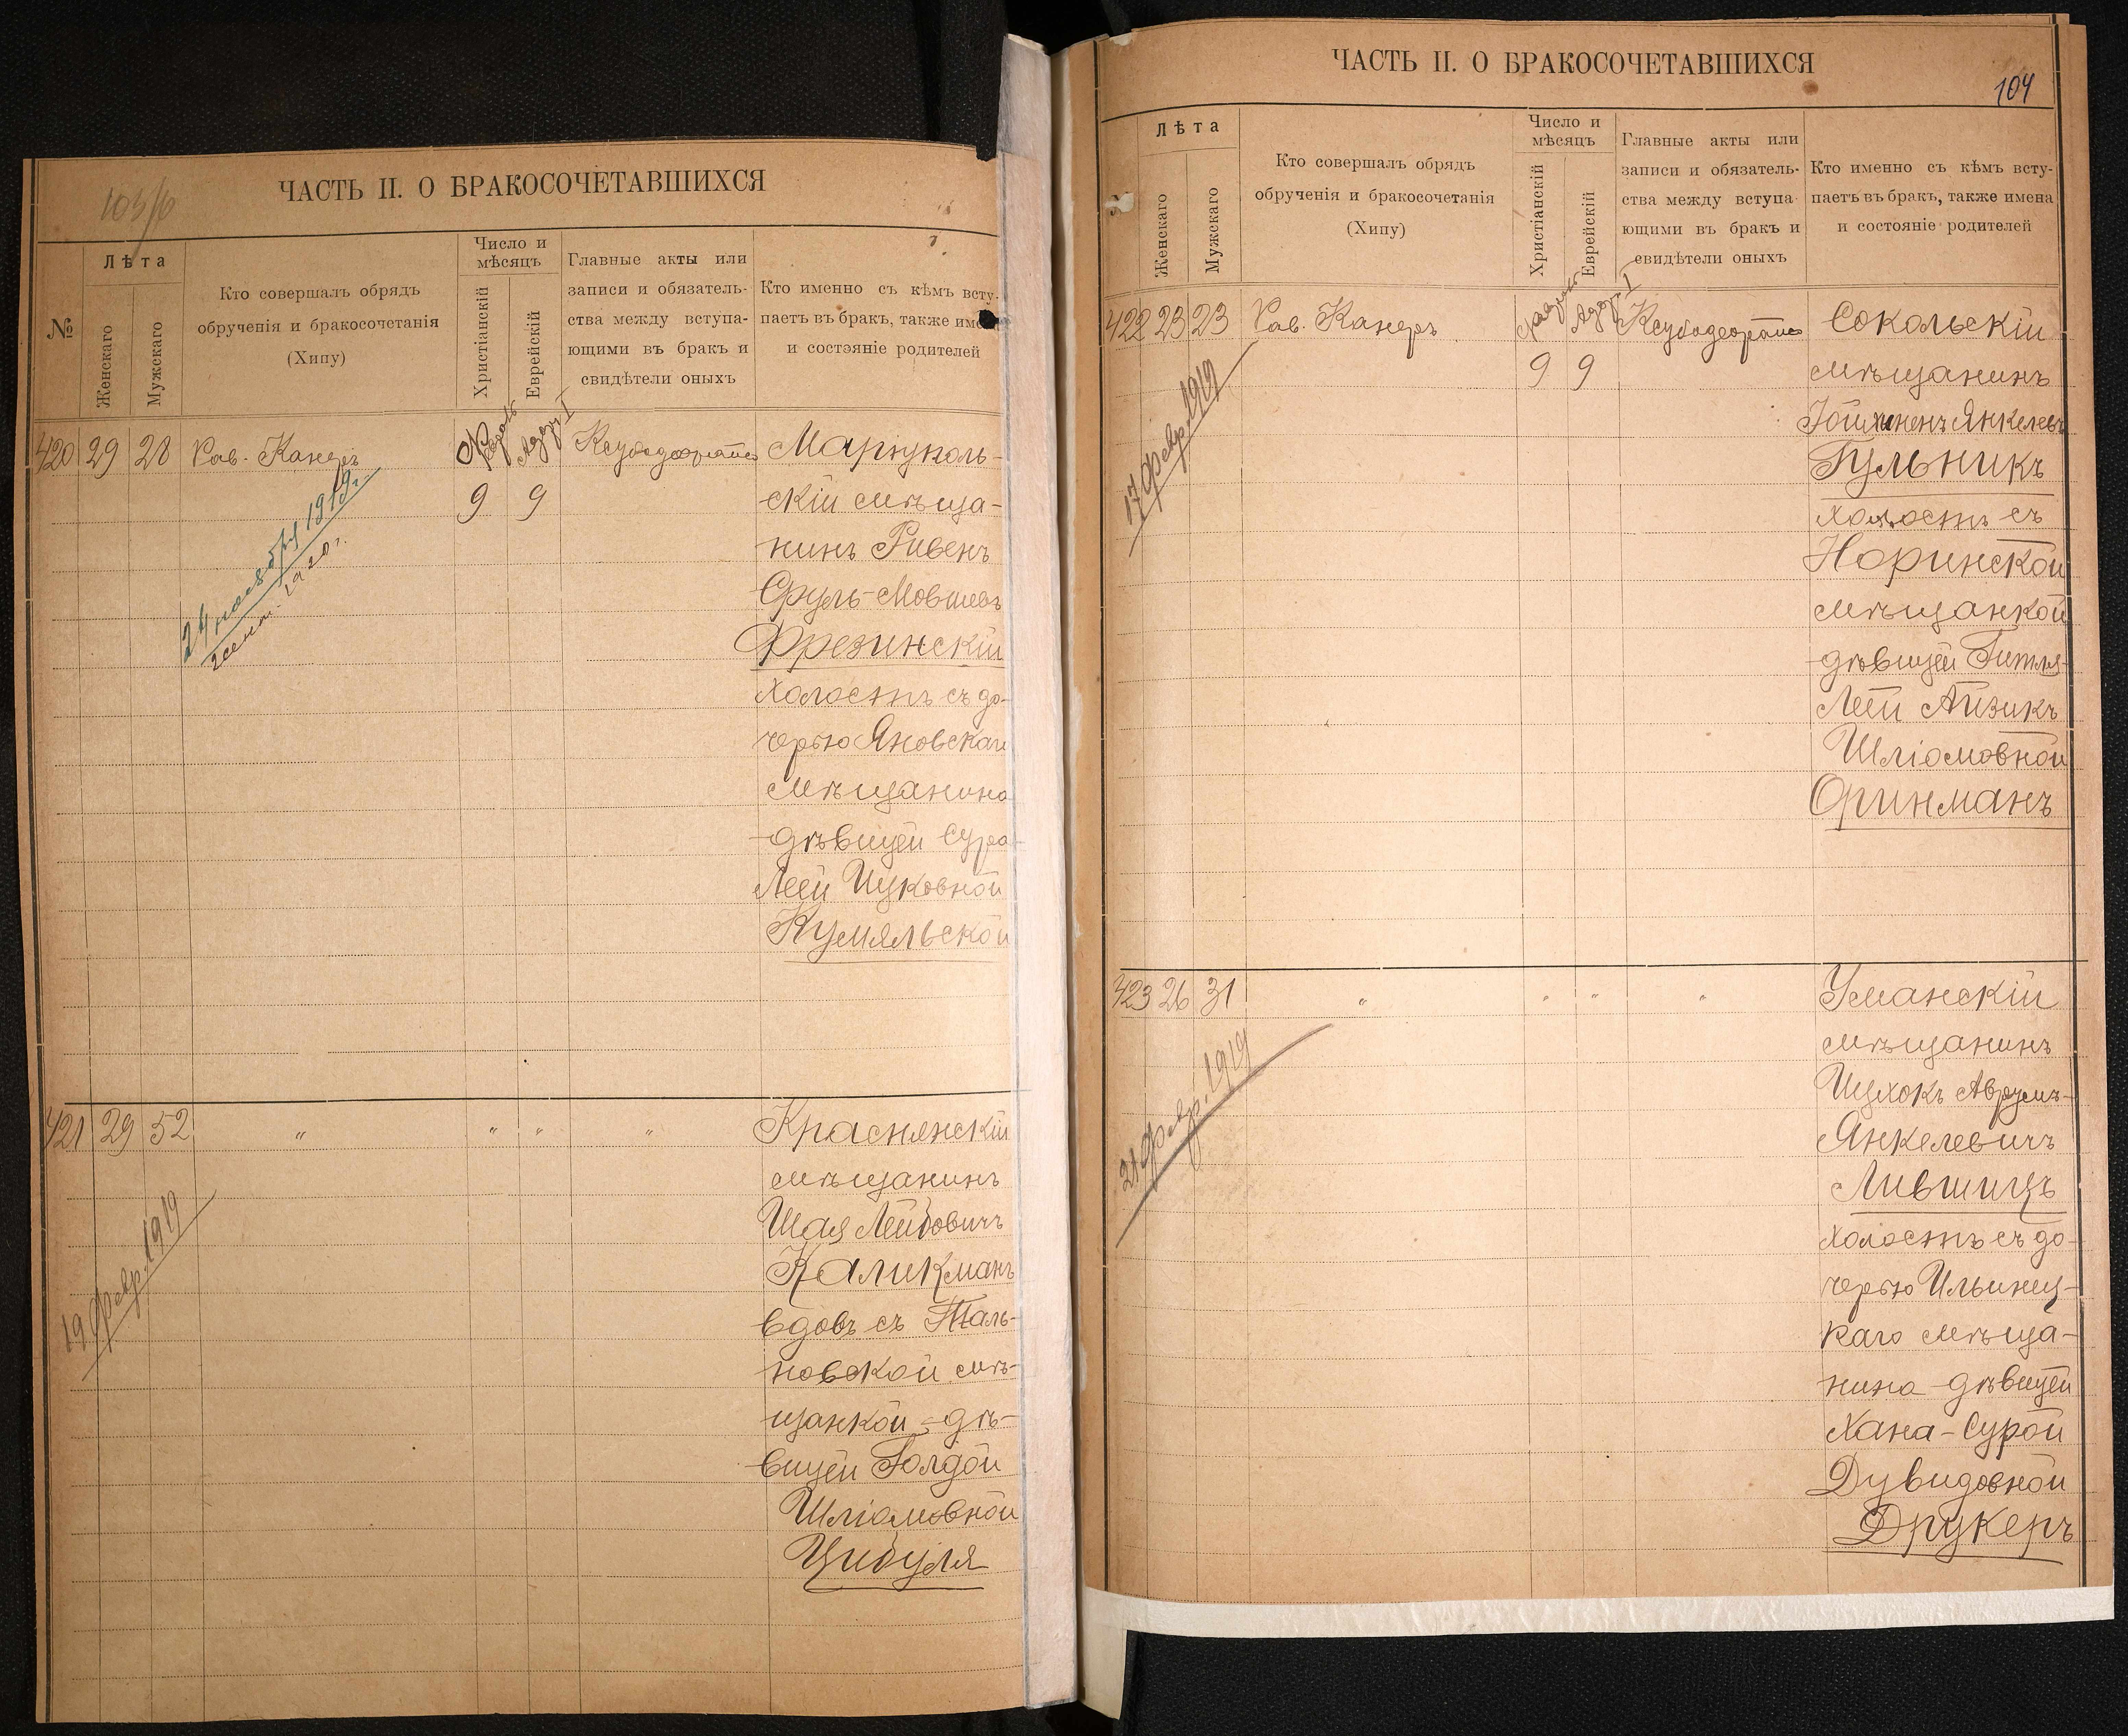 103/6
ЧАСТЬ II. О БРАКОСОЧЕТАВШИХСЯ
№
Лѣта
Женскаго
Мужскаго
Кто совершалъ обрядъ
обрученія и бракосочетанія
(Хипу)
Число и
мѣсяцъ
Христіанскій
Еврейскій
Главные акты или
записи и обязатель-
ства между вступа-
ющими въ бракъ и
свидѣтели оныхъ
Кто именно съ кѣмъ всту-
паетъ въ бракъ, также
и состояніе родителей
420 29 28 Рав. Канеръ
Февраль 9
Адаръ I 9
24 ноября 1919 г.
1920 г.
Маріуполь-
скій мѣща-
нинъ Рувенъ
Сруль-Мовшевъ
Фрезинскій
холостъ съ до-
черью Яновскаго
мѣщанина
дѣвицей Сура
Леей Ицковной
Кумяльской
421 29 52 " " " "
19 февр. 1919
Краснянскій
мѣщанинъ
Шая Лейбовичъ
Каликманъ
вдовъ съ Таль-
новской мѣ-
щанкой - дѣ-
вицей Голдой
Шліомовной
Цибуля
ЧАСТЬ II. О БРАКОСОЧЕТАВШИХСЯ
104
Лѣта
Женскаго
Мужскаго
Кто совершалъ обрядъ
обрученія и бракосочетанія
(Хипу)
Число и
мѣсяцъ
Христіанскій
Еврейскій
Главные акты или
записи и обязатель-
ства между вступа-
ющими въ бракъ и
свидѣтели оныхъ
Кто именно съ кѣмъ всту-
паетъ въ бракъ, также имена
и состояніе родителей
422 23 23 Рав. Канеръ
Февраль 9
Адаръ I 9
17 февр. 1919
Сокольскій
мѣщанинъ
Янкелевъ
Гульникъ
холостъ съ
Норинской
мѣщанкой
дѣвицей Гитля-
Леей Айзикъ
Шліомовной
Оринманъ
423 26 31 " " " "
21 февр. 1919
Уманскій
мѣщанинъ
Ицхокъ Аврумъ-
Янкелевичъ
Лившицъ
холостъ съ до-
черью Ильинец-
каго мѣща-
нина дѣвицей
Хана-Сурой
Дувидовной
Друкеръ